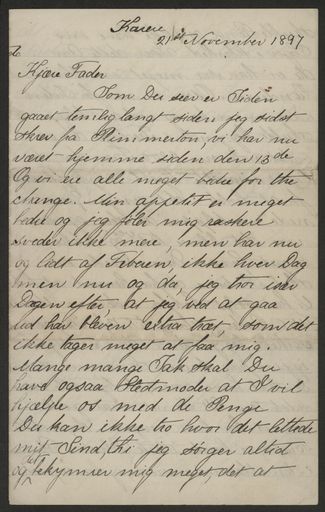 Karere
21st November 1897
Kjære Fader
Som Du seer er Tiden
gaaet temlig langt siden jeg sidst
skrev fra Rimmerton, vi har nu
været hjemme siden den 13de
Og vi ere alle meget bedre for the
change. Min appetit er meget
bedre og jeg føler mig raskere
sveder ikke mere, men har nu
og lidt af Feberen, ikke hver Dag
men nu og da, jeg tror især
Dagen efter at jeg ved at gaa
ud har bleven extra træt, som det
ikke tager meget at faa mig.
Mange mange Tak skal Du
have ogsaa Stedmoder at I vil
hjælpe os med de Penge
Du kan ikke tro hvor det lettede
mit Sind, thi jeg sørger altid
og bekymrer mig meget, det at